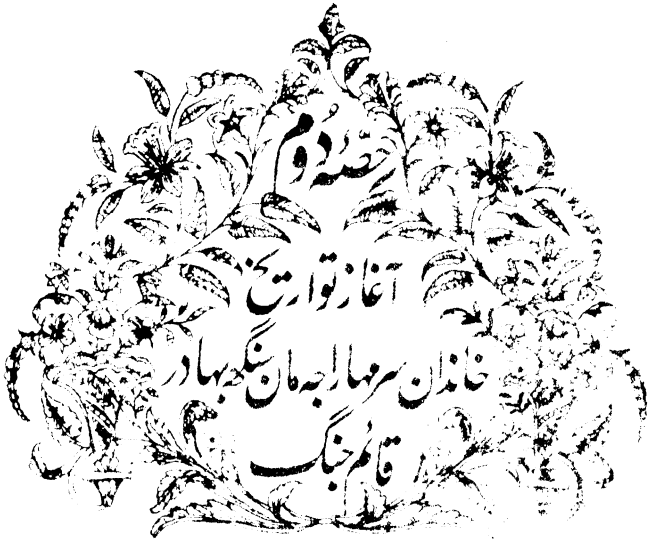 حصّۂ دُوم
آغاز تواریخ
خاندان سر مہاراجہ مان سنگھ بہادر
قائم جنگ